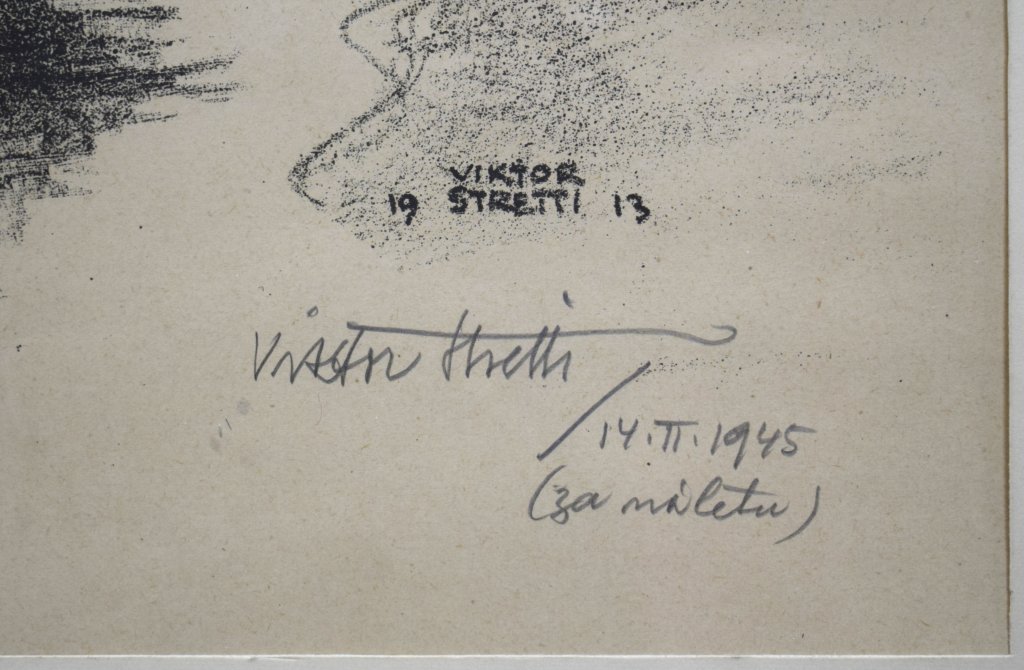 VIKTOR
19 STRETTI 13
Viktor Stretti
14.II.1945
(za náletu)